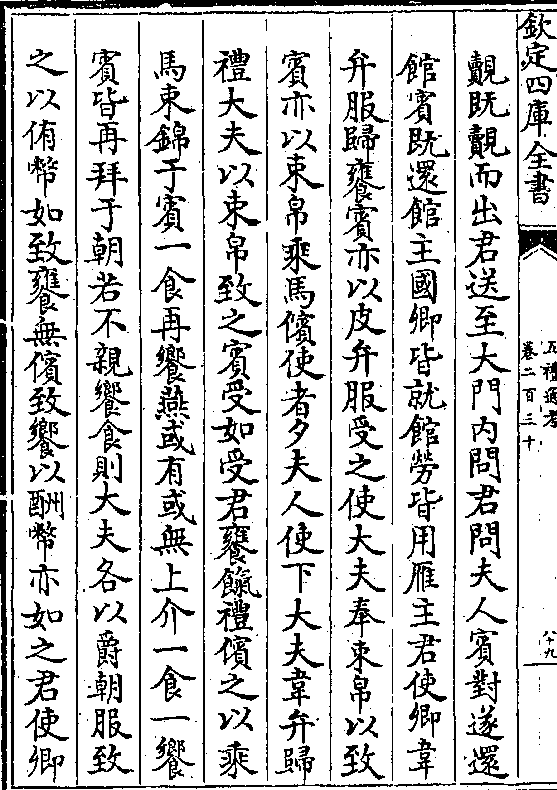 欽定四庫全書
五禮通考
卷二百三十
八十九
覿既覿而出君送至大門内問君問夫人賓對遂還
館賓既還館主國卿皆就館勞皆用雁主君使卿韋
弁服歸饔賓亦以皮弁服受之使大夫奉束帛以致
賓亦以束帛乘馬儐使者夕夫人使下大夫韋弁歸
禮大夫以束帛致之賓受如受君饔餼禮儐之以乘
馬束錦于賓一食再饗燕或有或無上介一食一饗
賓皆再拜于朝若不親饗食則大夫各以爵朝服致
之以侑幣如致饔無儐致饗以酬幣亦如之君使卿